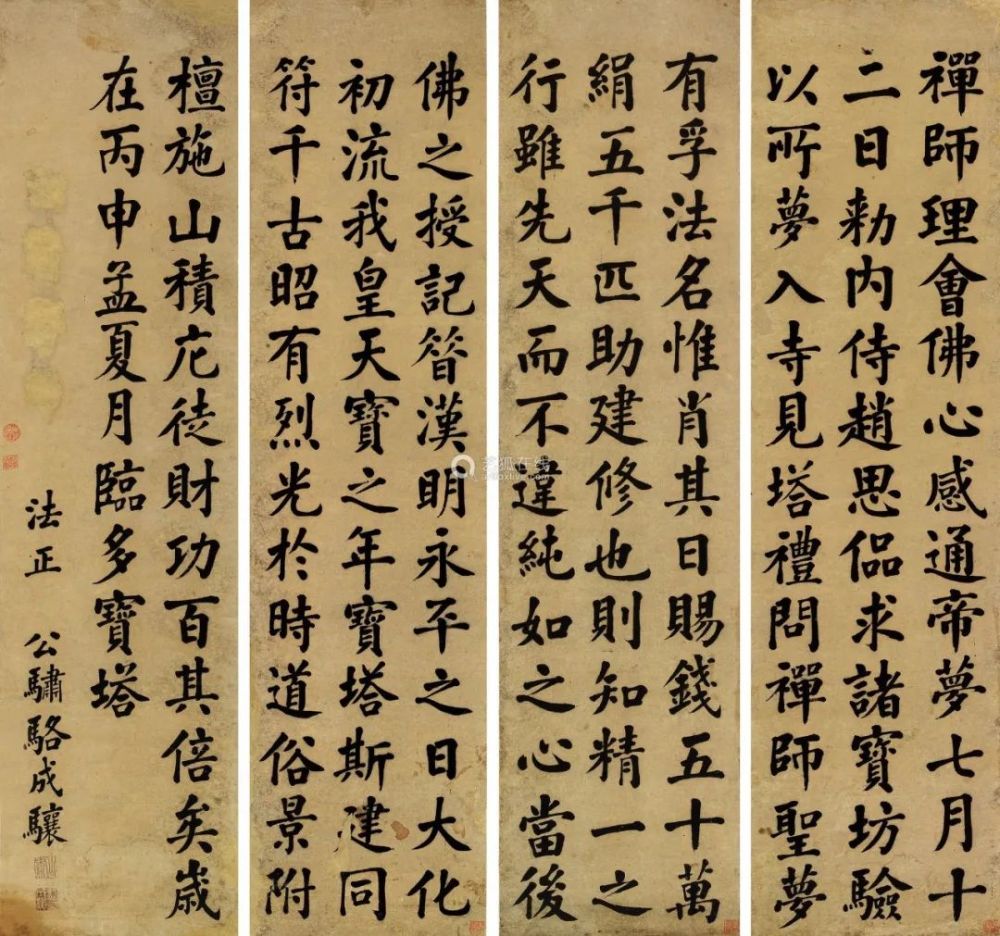 禪師理會佛心感通帝夢七月十
二日勑内侍趙思侶求諸寶坊驗
以所夢入寺見塔禮問禪師聖夢
有孚法名惟肖其日賜錢五十萬
絹五千匹助建修也則知精一之
行雖先天而不違純如之心當後
佛之授記昔漢明永平之日大化
初流我皇天寶之年寶塔斯建同
符千古昭有烈光於時道俗景附
檀施山積庀徒財功百其倍矣歲
在丙申孟夏月臨多寶塔
法正 公驌駱成驤